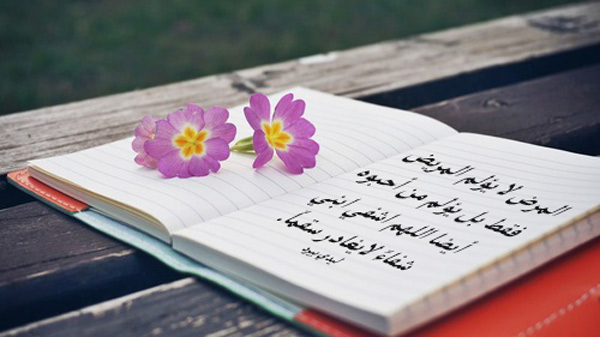 المرض لا يؤلم المريض
فقط بل يؤلم من أحبوه
أيضا اللهم اشفي ابني
شفاءً لا يغادر سقماً.
ليدي بيرد